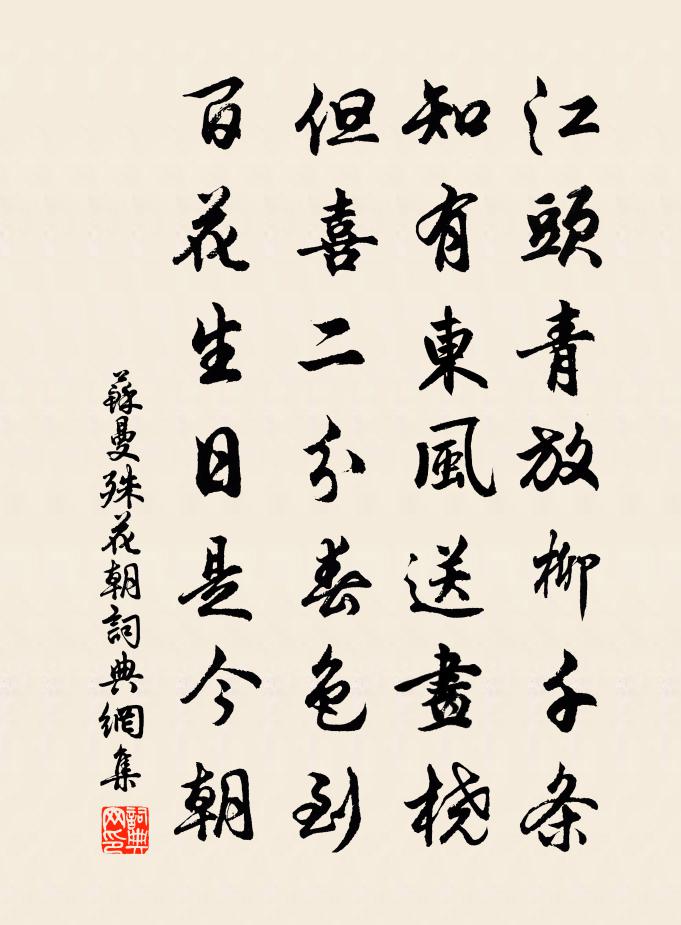 江頭青放柳千条
知有東風送畫桡
但喜二分春色到
百花生日是今朝
蘇曼殊花朝詞典網集
詞典网印